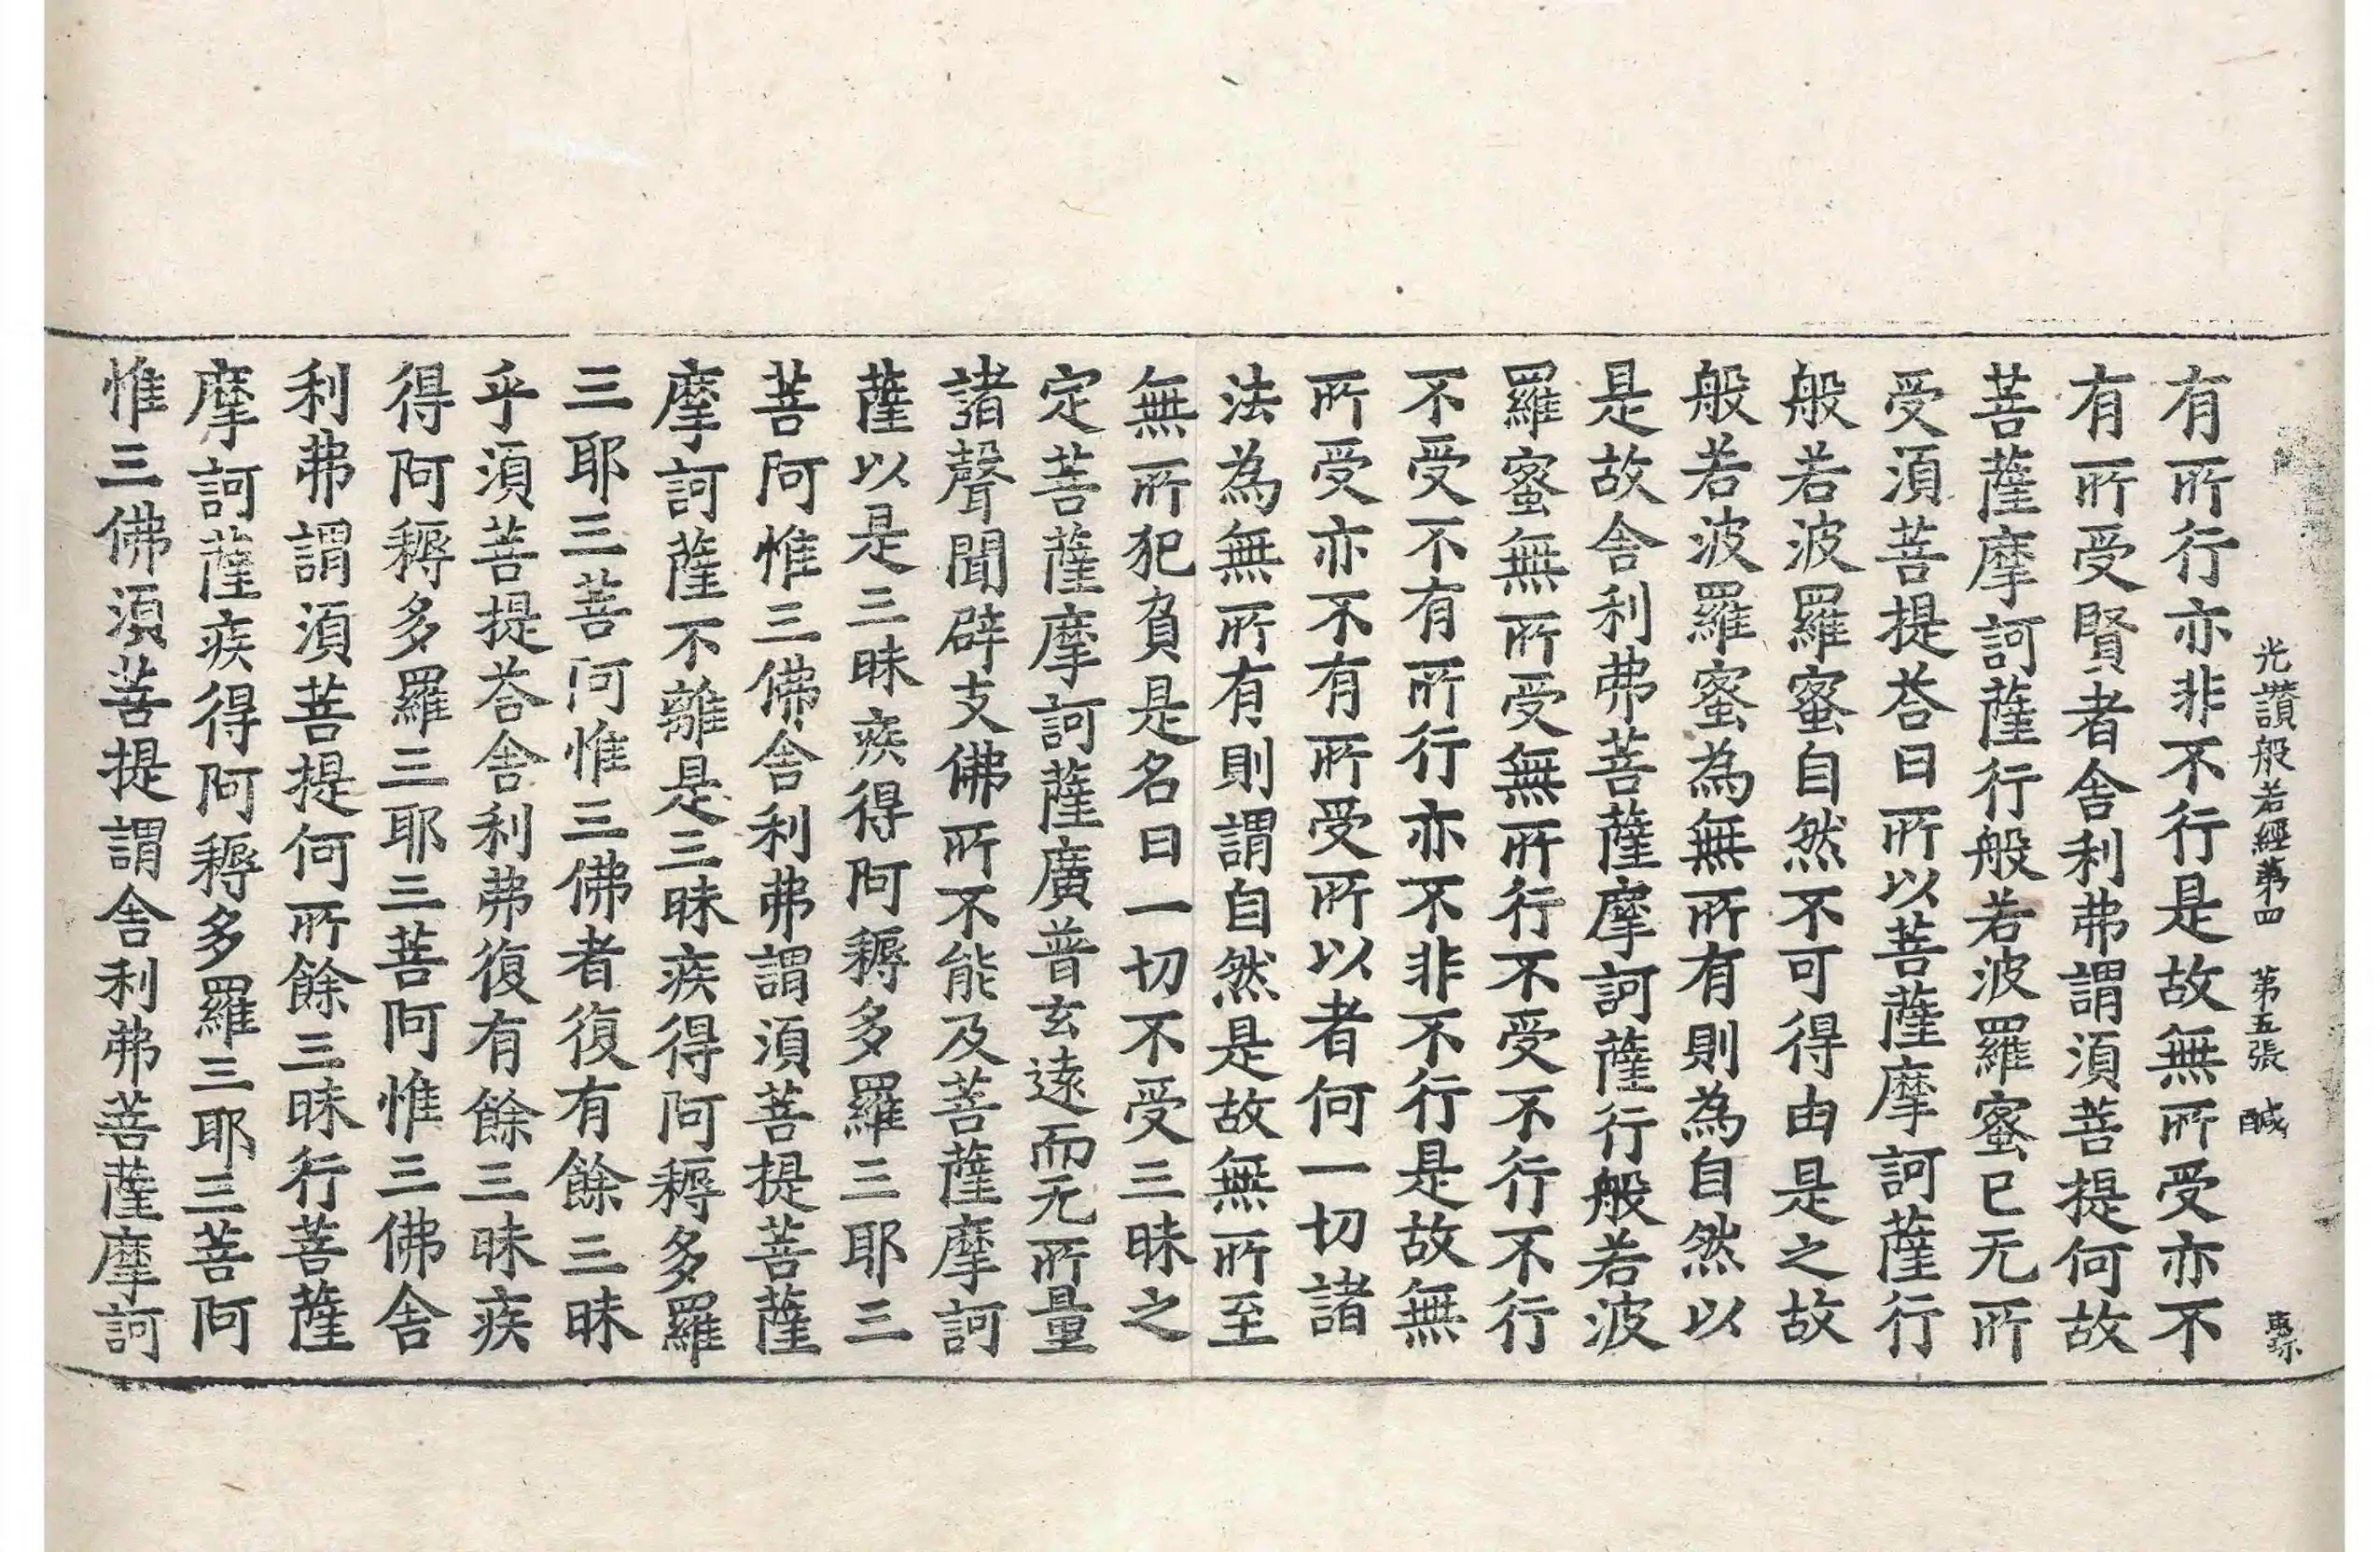 光讚般若經第四　第五張　醎
有所行亦非不行是故無所受亦不
有所受賢者舍利弗謂須菩提何故
菩薩摩訶薩行般若波羅蜜已无所
受須菩提荅曰所以菩薩摩訶薩行
般若波羅蜜自然不可得由是之故
般若波羅蜜為無所有則為自然以
是故舍利弗菩薩摩訶薩行般若波
羅蜜無所受無所行不受不行不行
不受不有所行亦不非不行是故無
所受亦不有所受所以者何一切諸
法為無所有則謂自然是故無所至
無所犯負是名曰一切不受三昧之
定菩薩摩訶薩廣普玄遠而无所量
諸聲聞辟支佛所不能及菩薩摩訶
薩以是三昧疾得阿耨多羅三耶三
菩阿惟三佛舍利弗謂須菩提菩薩
摩訶薩不離是三昧疾得阿耨多羅
三耶三菩阿惟三佛者復有餘三昧
乎須菩提荅舍利弗復有餘三昧疾
得阿耨多羅三耶三菩阿惟三佛舍
利弗謂須菩提何所餘三昧行菩薩
摩訶薩疾得阿耨多羅三耶三菩阿
惟三佛須菩提謂舍利弗菩薩摩訶